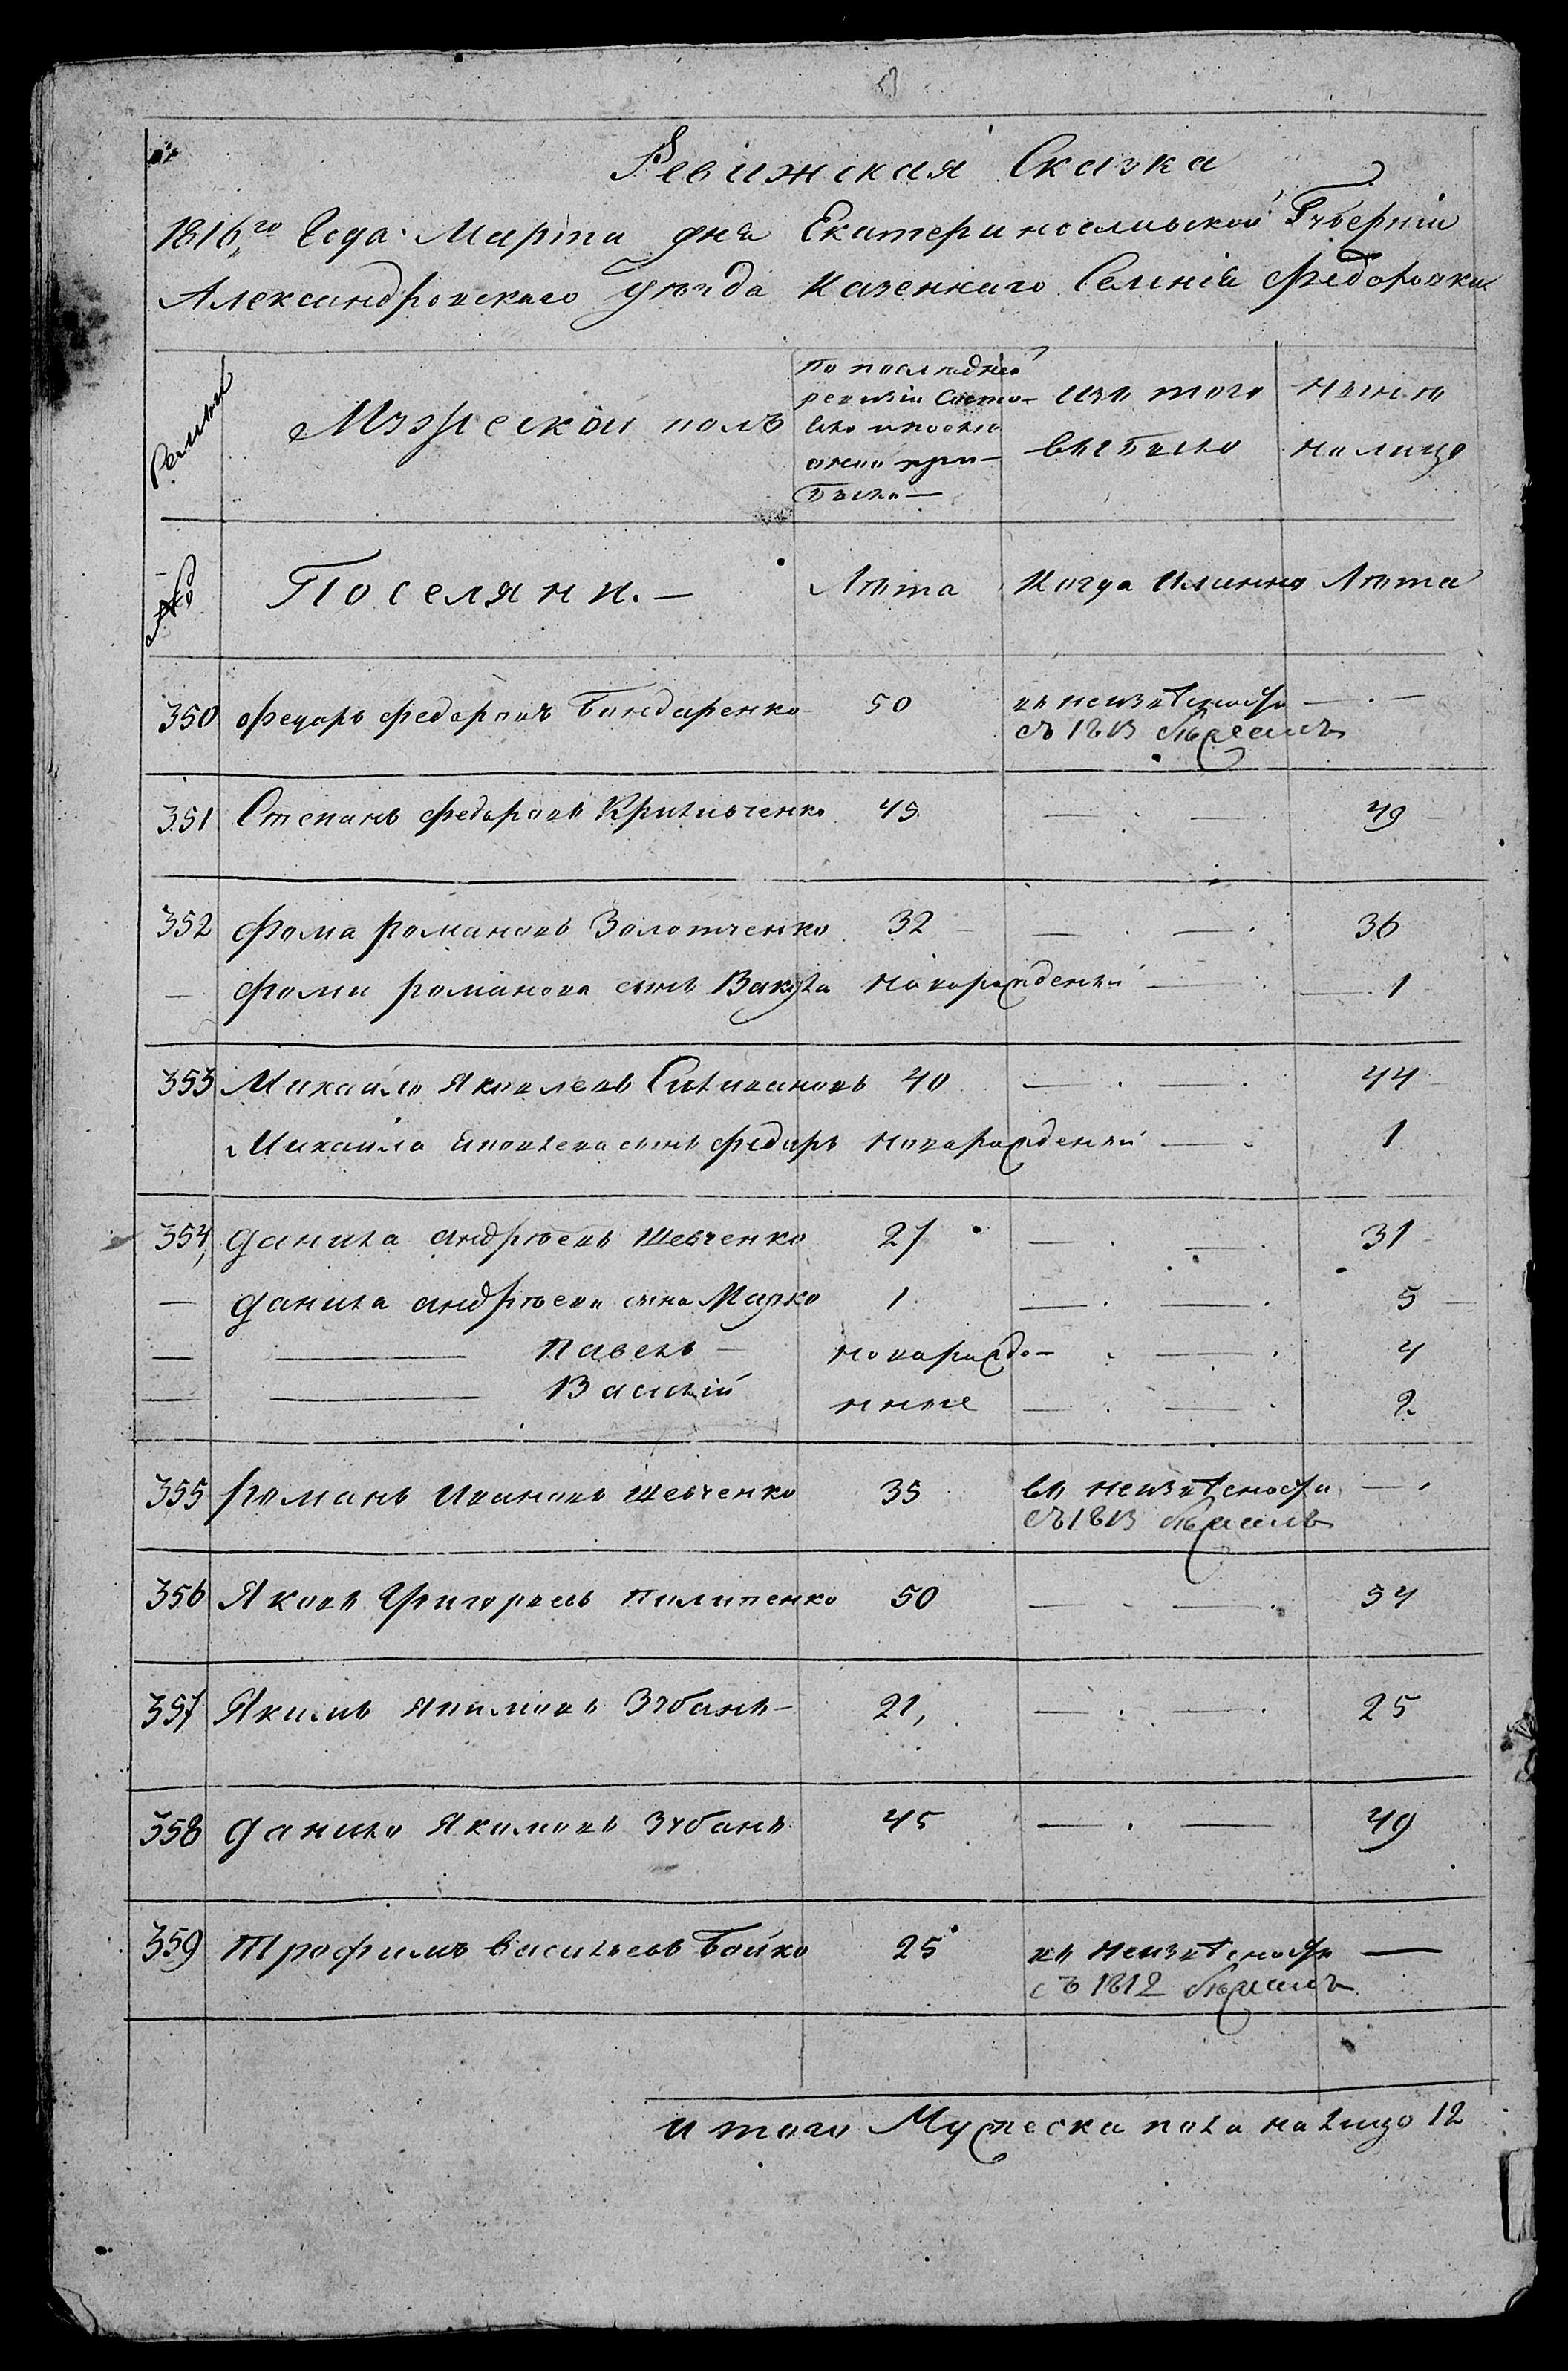 Ревижская Сказка
1816,го Года Марта дня Екатеринославской Губернии
Александровского Уезда Казеннаго Селения Федоровки
Мужеской полъ
По последней ревизіи Состояло и после оной прибыло —
изъ того выбыло
ныне на лицо
№ Поселяни. — Лѣта Когда Именно Лѣта
350 Федоръ Федоровъ Бондаренко 50 въ неизвѣсности — . —
съ 1813 бѣжалъ
351 Степанъ Федоровъ 45 — . — . 49
352 Фома Романовъ Золотченко 32 — . — . 36
— Фомы Романова сынъ Вакула Новорожденый — . — 1
353 Михайло Яковлевъ 40 — . — . 44
Михайла Яковлева сынъ Федоръ Новорожденый — . 1
354, Данила Андрѣевъ Шевченко 27 — . — . 31
— Данила Андрѣева сына Марко 1 — . — . 5
— — Павелъ — новорожде- . — . 4
— — Василій нные — . — . 2
355 Романъ Ивановъ Шевченко 35 въ неизвѣсности — .
съ 1813 бѣжалъ
356 Яковъ Григорьевъ Пилипенко 50 — . — . 54
357 Якимъ Якимовъ Зубань — 21, — . — . 25
358 Данило Якимовъ Зубань 45 — . — 49
359 Трофимъ Васильевъ Бойко 25 въ неизвѣсности —
съ 1812 бѣжалъ
итого Мужеска пола налицо 12